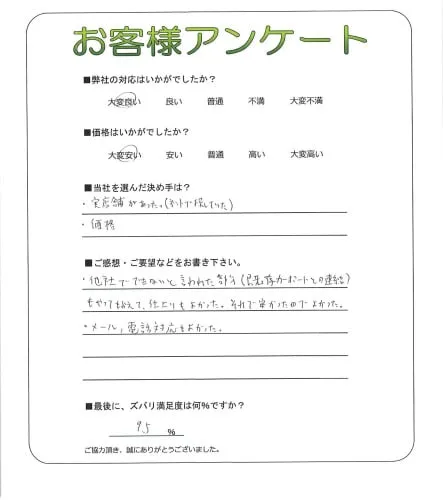 お客様アンケート
■弊社の対応はいかがでしたか？
大変良い 良い 普通 不満 大変不満
■価格はいかがでしたか？
大変安い 安い 普通 高い 大変高い
■当社を選んだ決め手は？
・実店舗があった。(ネットで探していた)
・価格
■ご感想・ご要望などをお書き下さい。
・他社でできないと言われた部分(既存カーポートとの連結)
もやってもらえて、仕上りもよかった。それで安かったのでよかった。
・メール,電話対応もよかった。
■最後に、ズバリ満足度は何%ですか？
95 %
ご協力頂き、誠にありがとうございました。